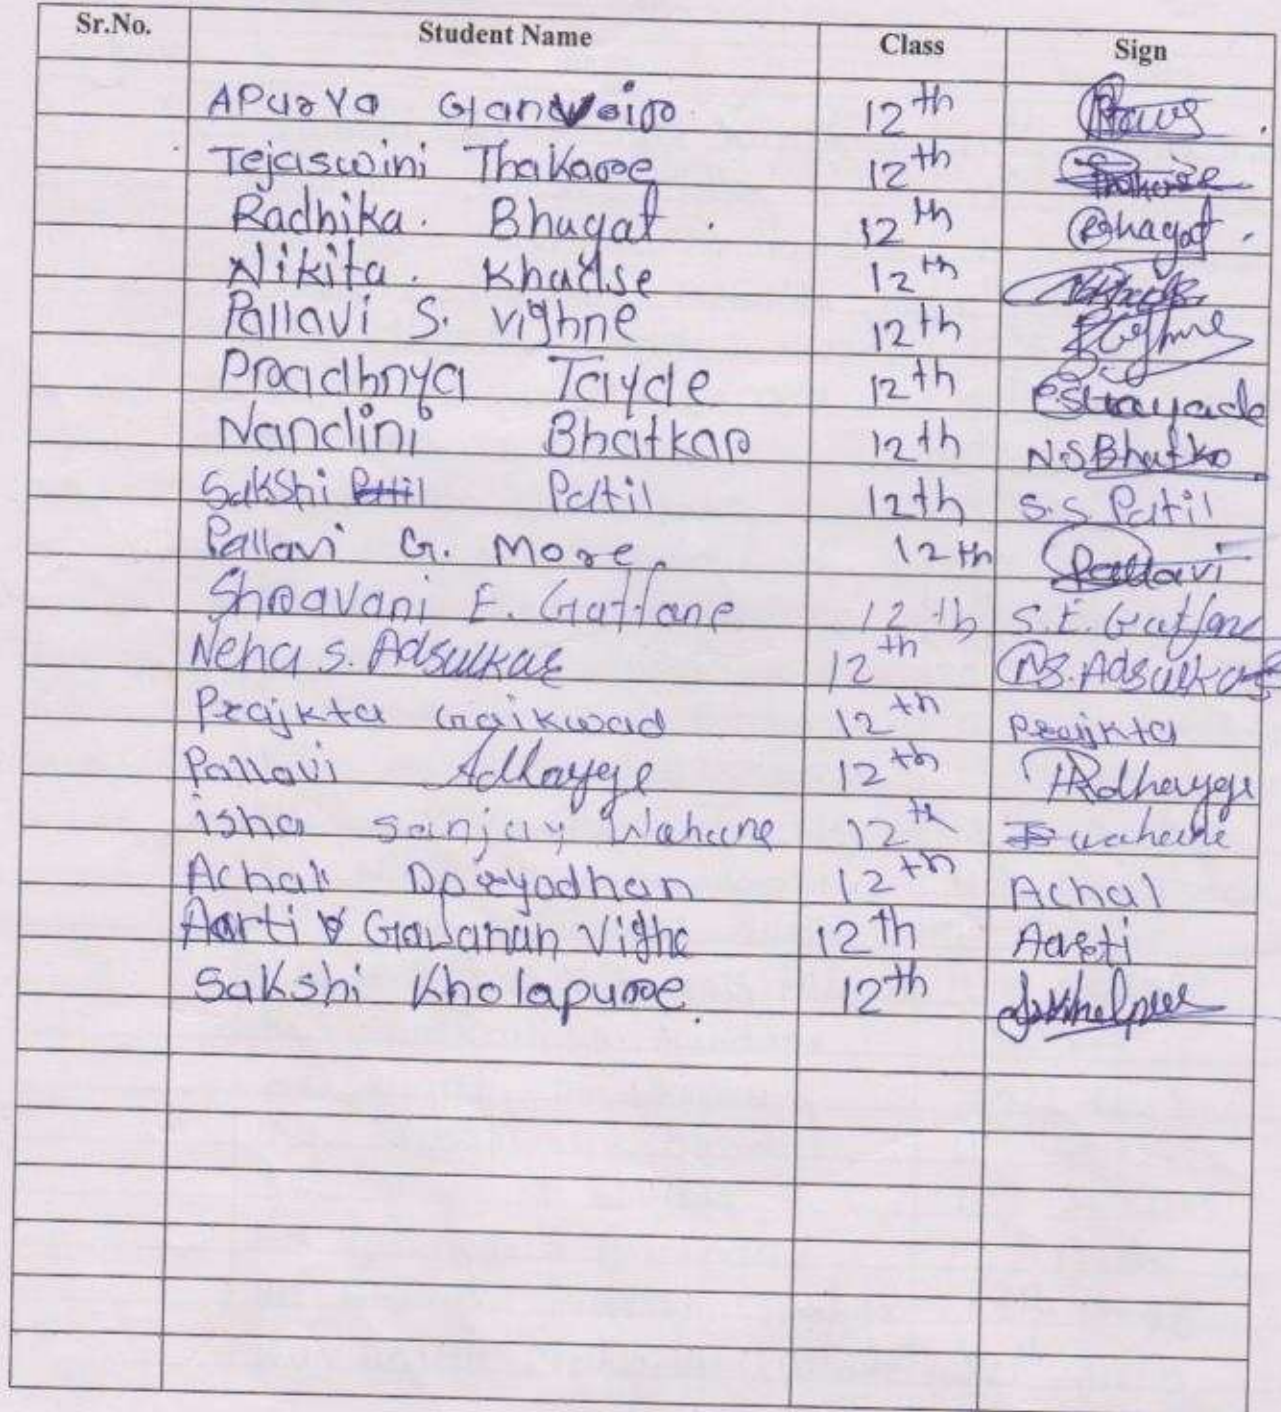 Sr.No. Student Name Class Sign
Apurva 12th
Tejaswini Thakare 12th Thakare
Radhika. Bhagat. 12th Bhagat.
Nikita. Khadse 12th
Pallavi S. Vighne 12th
Pradhnya Tayde 12th
Nandini Bhatkar 12th N.S Bhatka
Sakshi Patil Patil 12th S.S Patil
Pallavi G. More. 12th Pallavi
Shravani E. Gaffane 12th S.E. Gaffane
Neha S. Adsulkar 12th N.S. Adsulkar
Prajkta Gaikwad 12th Prajkta
Pallavi Adhayge 12th PAdhayge
isha sanjay Wahane 12th wahane
Achal 12th Achal
Aarti Gajanan Vighe 12th Aarti
Sakshi Kholapure. 12th